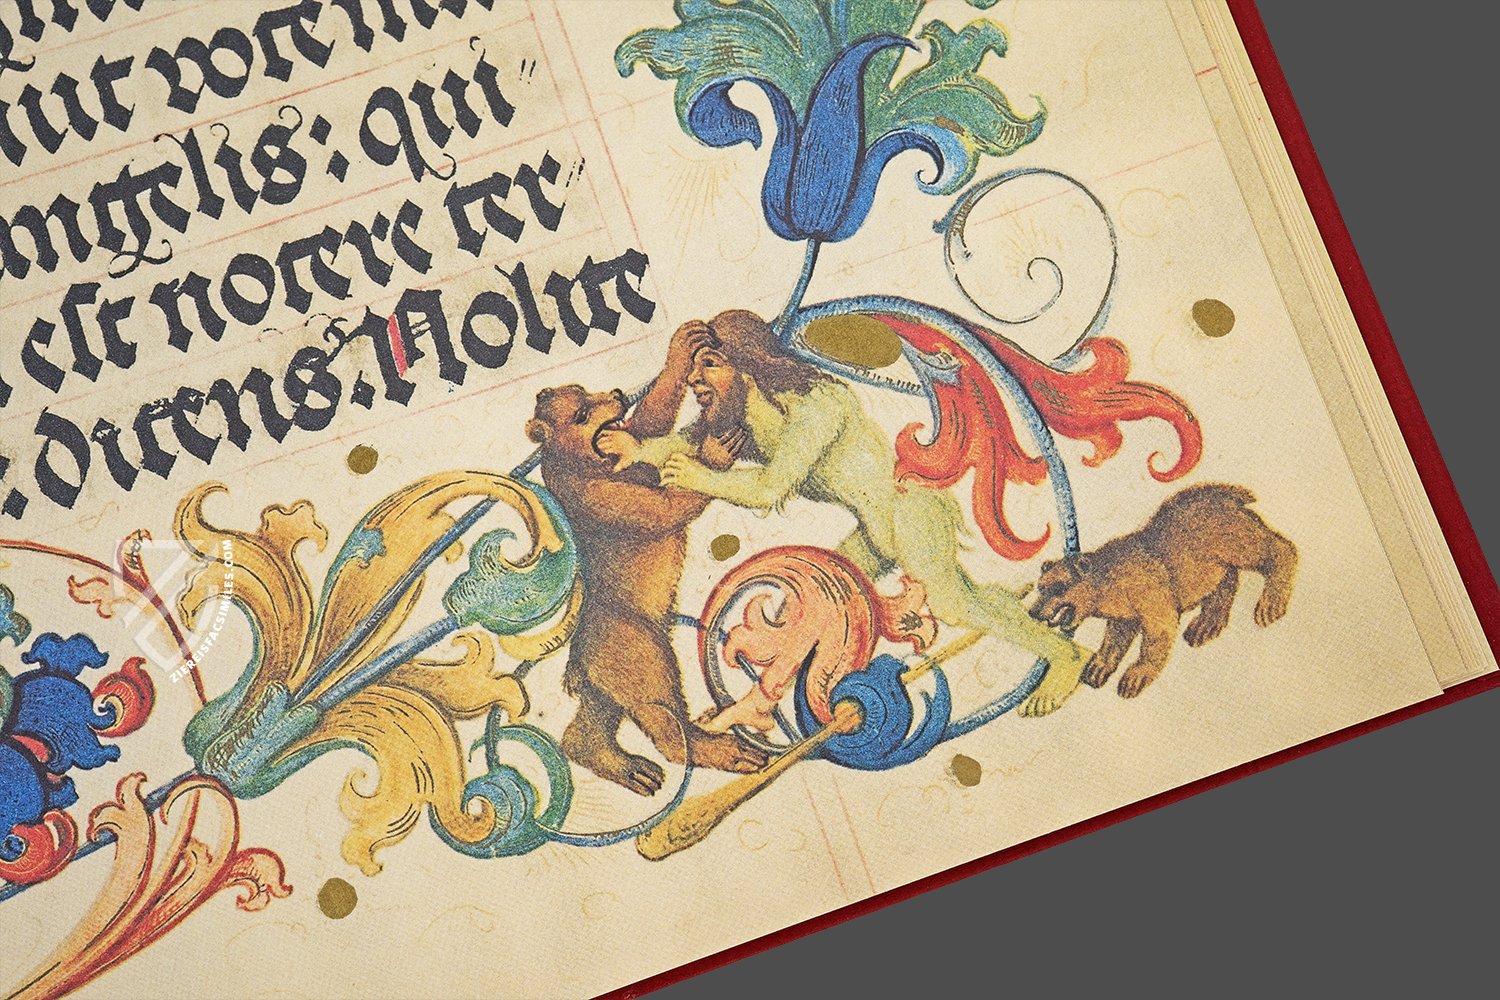 aut voce m
angelis: qui
est notere ter
: dicens. Nolite
ZIEREISFACSIMILES.COM